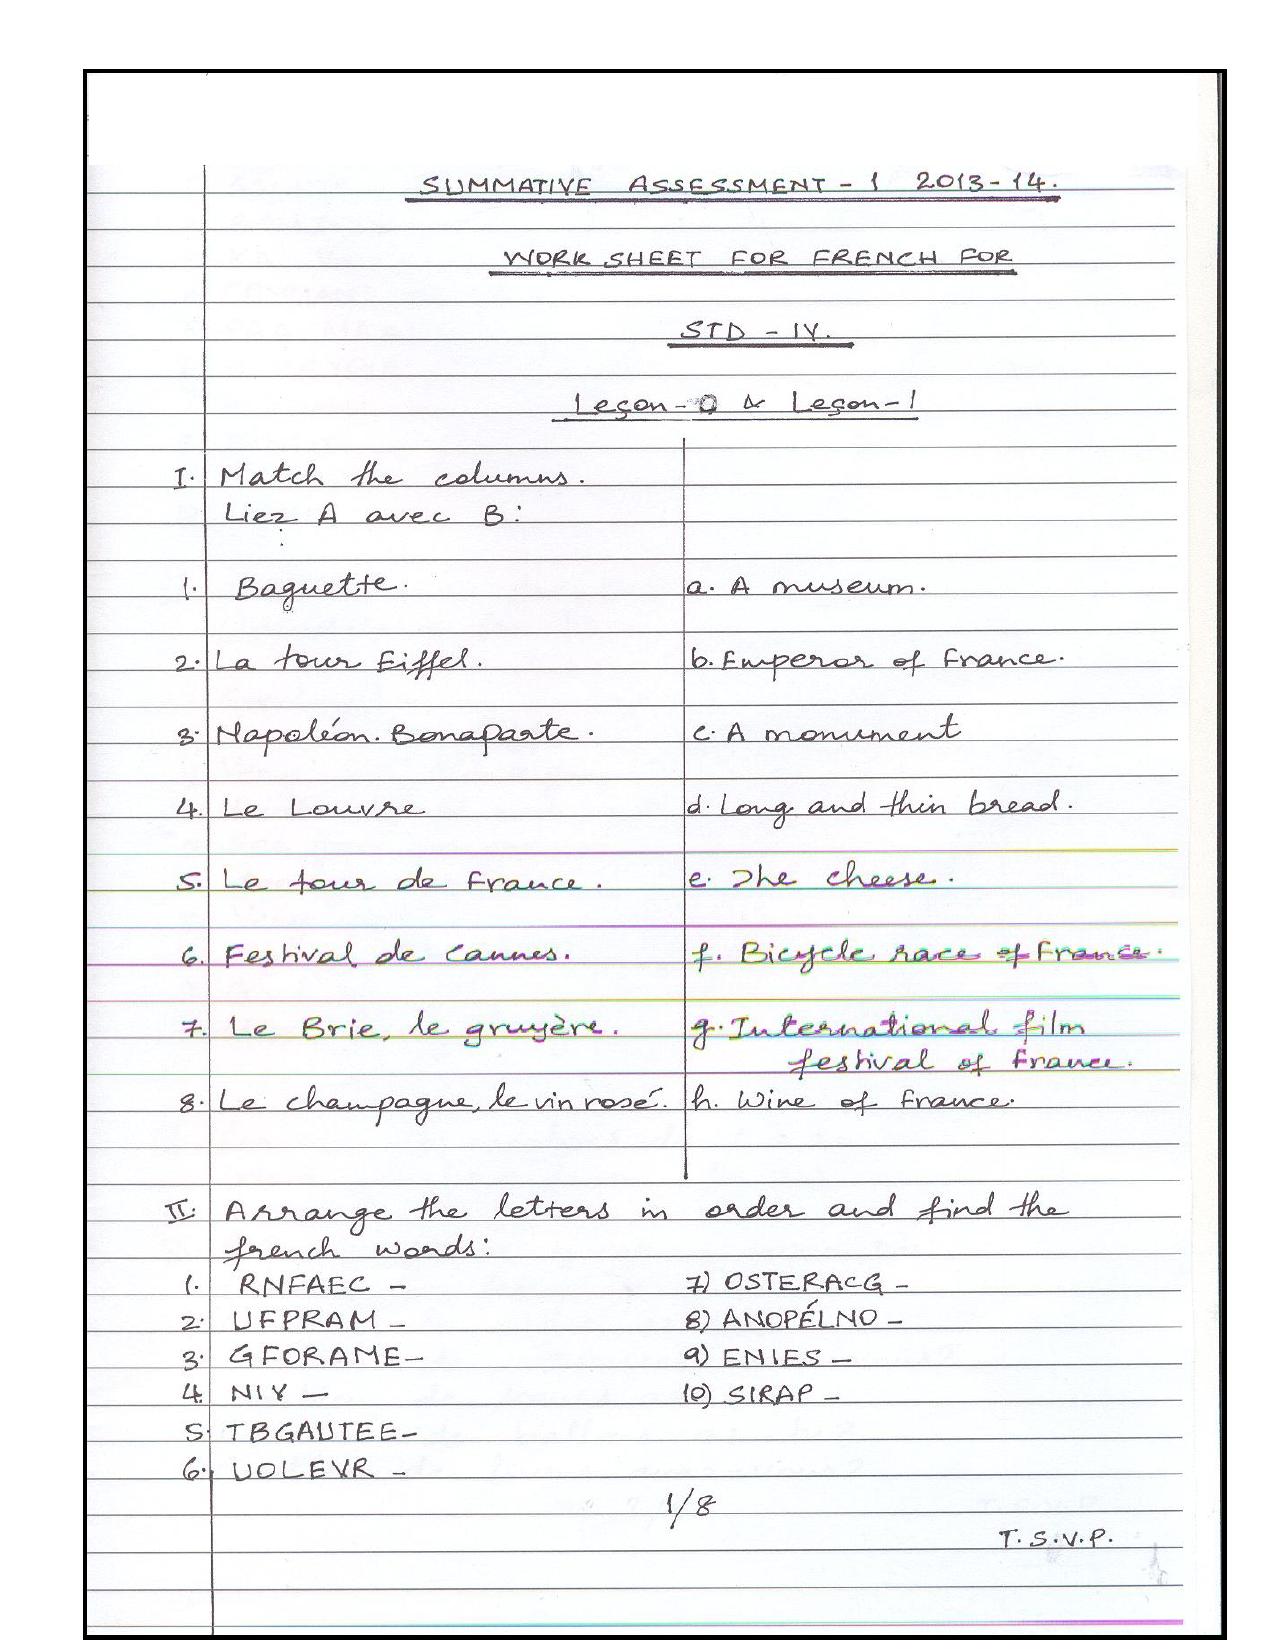 SUMMATIVE ASSESSMENT - 1 2013-14.
WORK SHEET FOR FRENCH FOR
STD - IV.
Leçon-0 & Leçon-1
I. Match the columns.
Liez A avec B:
1. Baguette. a. A museum.
2. La tour Eiffel. b. Emperor of France.
3. Napoléon. Bonaparte. c. A monument
4. Le Louvre d. Long and thin bread.
5. Le tour de France. e. The cheese.
6. Festival de Cannes. f. Bicycle race of France.
7. Le Brie, le gruyère. g. International film
festival of France.
8. Le champagne, le vin rosé. h. Wine of France.
II. Arrange the letters in order and find the
french words:
1. RNFAEC - 7) OSTERACG -
2. UFPRAM - 8) ANOPÉLNO -
3. GFORAME - 9) ENIES -
4. NIV - 10) SIRAP -
5. TBGAUTEE -
6. UOLEVR -
1/8
T.S.V.P.